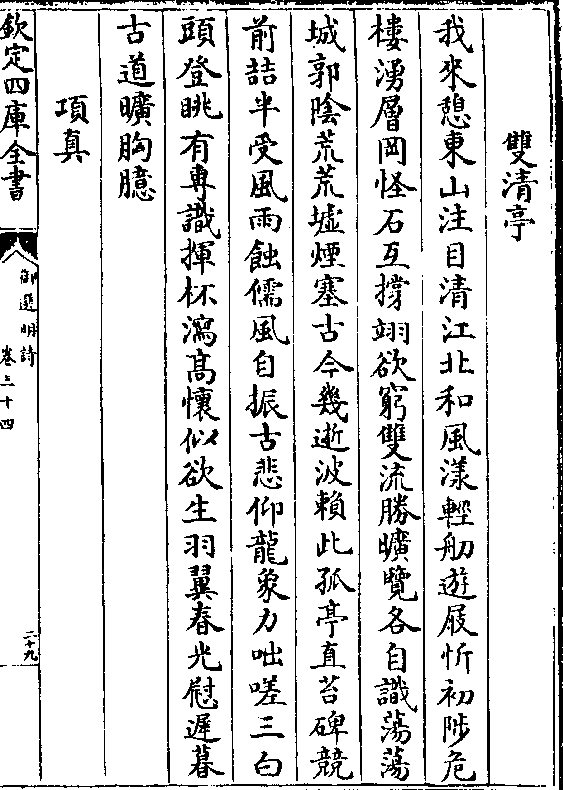 雙清亭
我來憩東山注目清江北和風漾輕舠遊屐忻初陟危
樓湧層岡怪石互撐翊欲窮雙流勝曠覽各自識蕩蕩
城郭陰荒荒墟煙塞古今幾逝波賴此孤亭直苔碑競
前喆半受風雨蝕儒風自振古悲仰龍象力咄嗟三白
頭登眺有專識揮杯瀉髙懷似欲生羽翼春光慰遲暮
古道曠胸臆
項真
欽定四庫全書
御選明詩
卷三十四
二十九